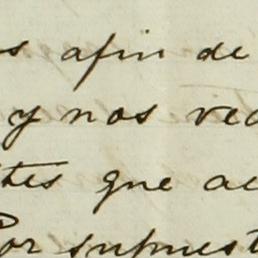 s afin de
y nos rec
tes que ac
Por supuest